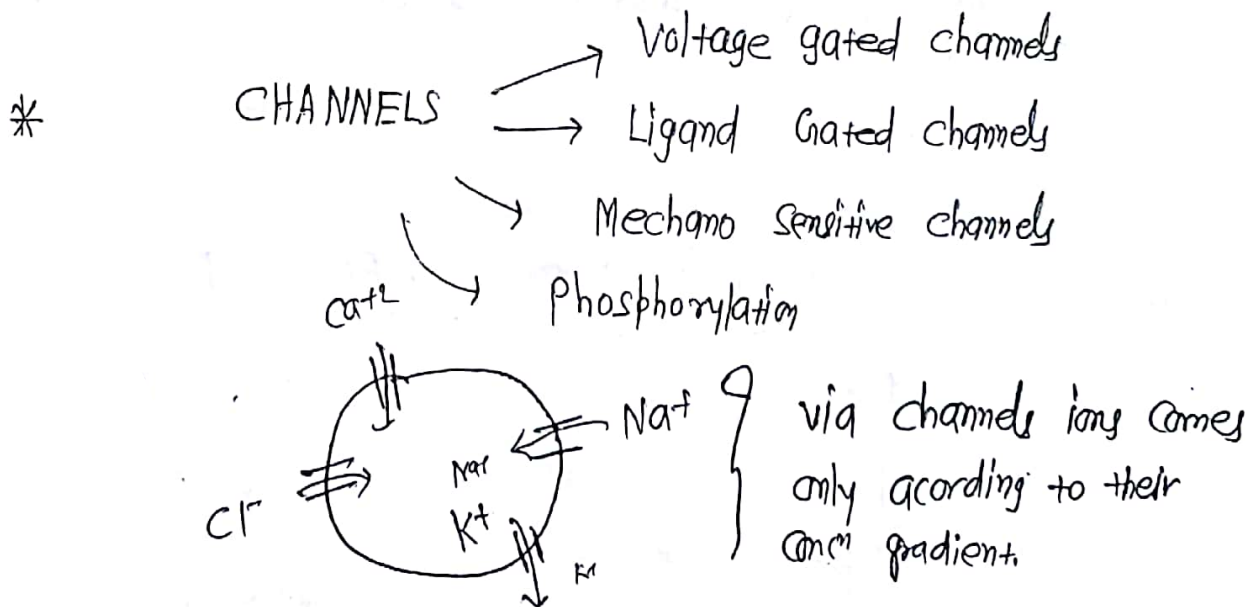 Voltage gated channels
* CHANNELS
Ligand Gated channels
Mechano sensitive channels
Phosphorylation
Ca+2
Na+
Na+
K+
Cl-
via channels ions comes
only acording to their
concn gradient.